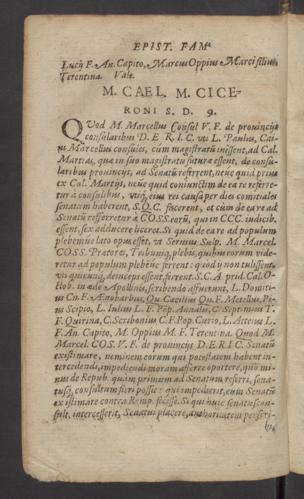 EPIST. FAM
Lucij F. An. Capito, Marcus Oppius Marci filius
Terentina. Vale.
M. CAEL. M. CICE-
RONI S. D. 9.
QVod M. Marcellus Consul V. F. de provincijs
consularibus D. E R. I C. vti L. Paulus, Cai-
us Marcellus consules, cùm magistratũ inissent, ad Cal.
Martias, quæ in suo magistratu futuræ essent, de consu-
laribus provincijs, ad Senatũ referrent, neue quid prius
ex Cal. Martijs, neue quid coniunctim de ea re referre-
tur à consulibus, vtiq́; eius rei causa per dies comitiales
senatum haberent, S. Q. C. facerent, et cùm de ea re ad
Senatũ refferretur à COSS. eorũ, qui in CCC. indicib.
essent, sex adducere liceret. Si quid de ea re ad populum
plebemúe lato opus esset, vt Servius Sulp. M. Marcel.
COSS. Prætores, Tribuniq́; plebis, quibus eorum vide-
retur ad populum plebẽue ferrent: quod ij non tulissent,
vti quicunq́; deinceps essent, ferrent. S. C. A prid. Cal. O-
ctob. in æde Apollinis, scribendo affuerunt, L. Domiti-
us Cn. F. Ænobarbus, Qu. Cæcilius Qu. F. Metellus, Pi-
us Scipio, L. Iulius L. F. Pop. Annalis, C. Septimius T.
F. Quirina, C. Scribonius C. F. Pop. Curio, L. Atteius L.
F. An. Capito, M. Oppius M. F. Terentina. Quod M.
Marcel. COS. V. F. de provincijs D. E R. I C. Senatũ
existimare, neminem eorum qui potestatem habent in-
tercedendi, impediendi moram afferre oportere, quò mi-
nus de Repub. quàm primum ad Senatum referri, sena-
tusq́; consultum fieri possit: qui impedierit, eum Senatũ
existimare contra Remp. fecisse. Si quis huic senatuscon-
sult. intercesserit, Senatui placere, authoritatem perscri-